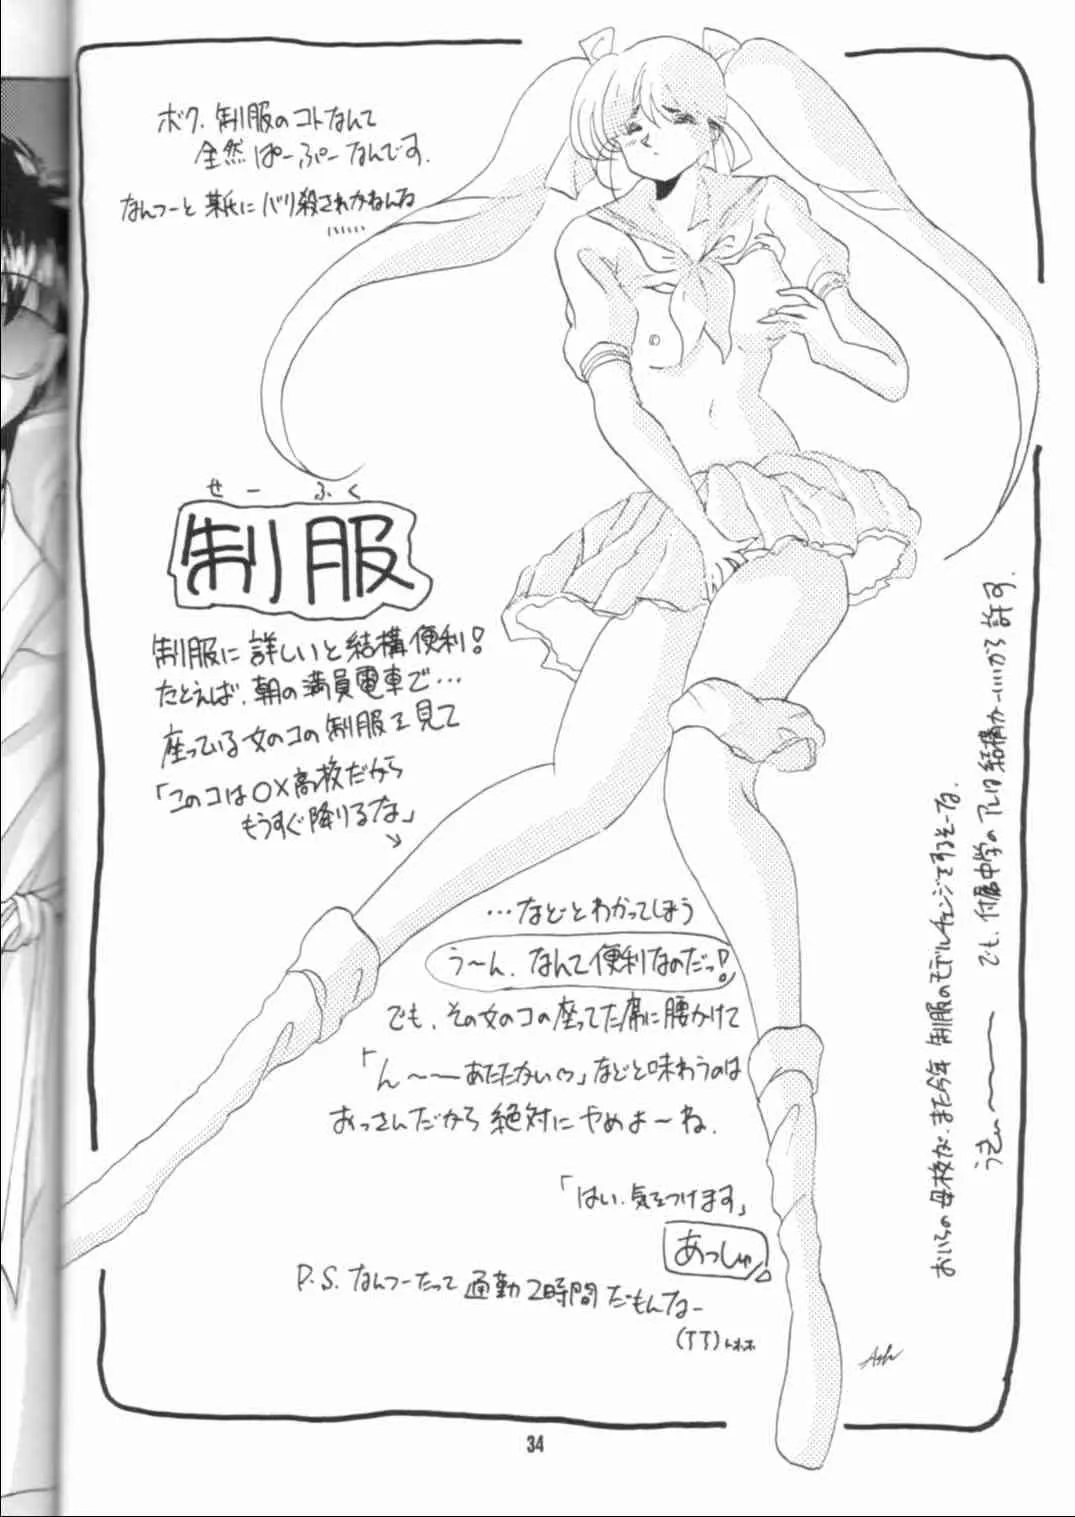 ボク、制服のコトなんて
全然ぱーぷーなんです.
なんつーと某氏にバリ殺されかねんな
せーふく
制服
制服に詳しいと結構便利!
たとえば、朝の満員電車で…
座っている女のコの制服を見て
「このコは○×高校だから
もうすぐ降りるな」
…などとわかってしまう
う〜ん、なんて便利なのだっ!
でも、その女のコの座ってた席に腰かけて
「ん〜〜あたたかい♡」などと味わうのは
おっさんだから絶対にやめよ〜ね.
「はい、気をつけます」
あっしゅ
P.S. なんつーたって通勤2時間だもんなー
おいらの母校が、また今年制服のモデルチェンジをするそーな.
うさぃ〜
でも、付属中学のアレは結構かーいいから許す.
Ash
34